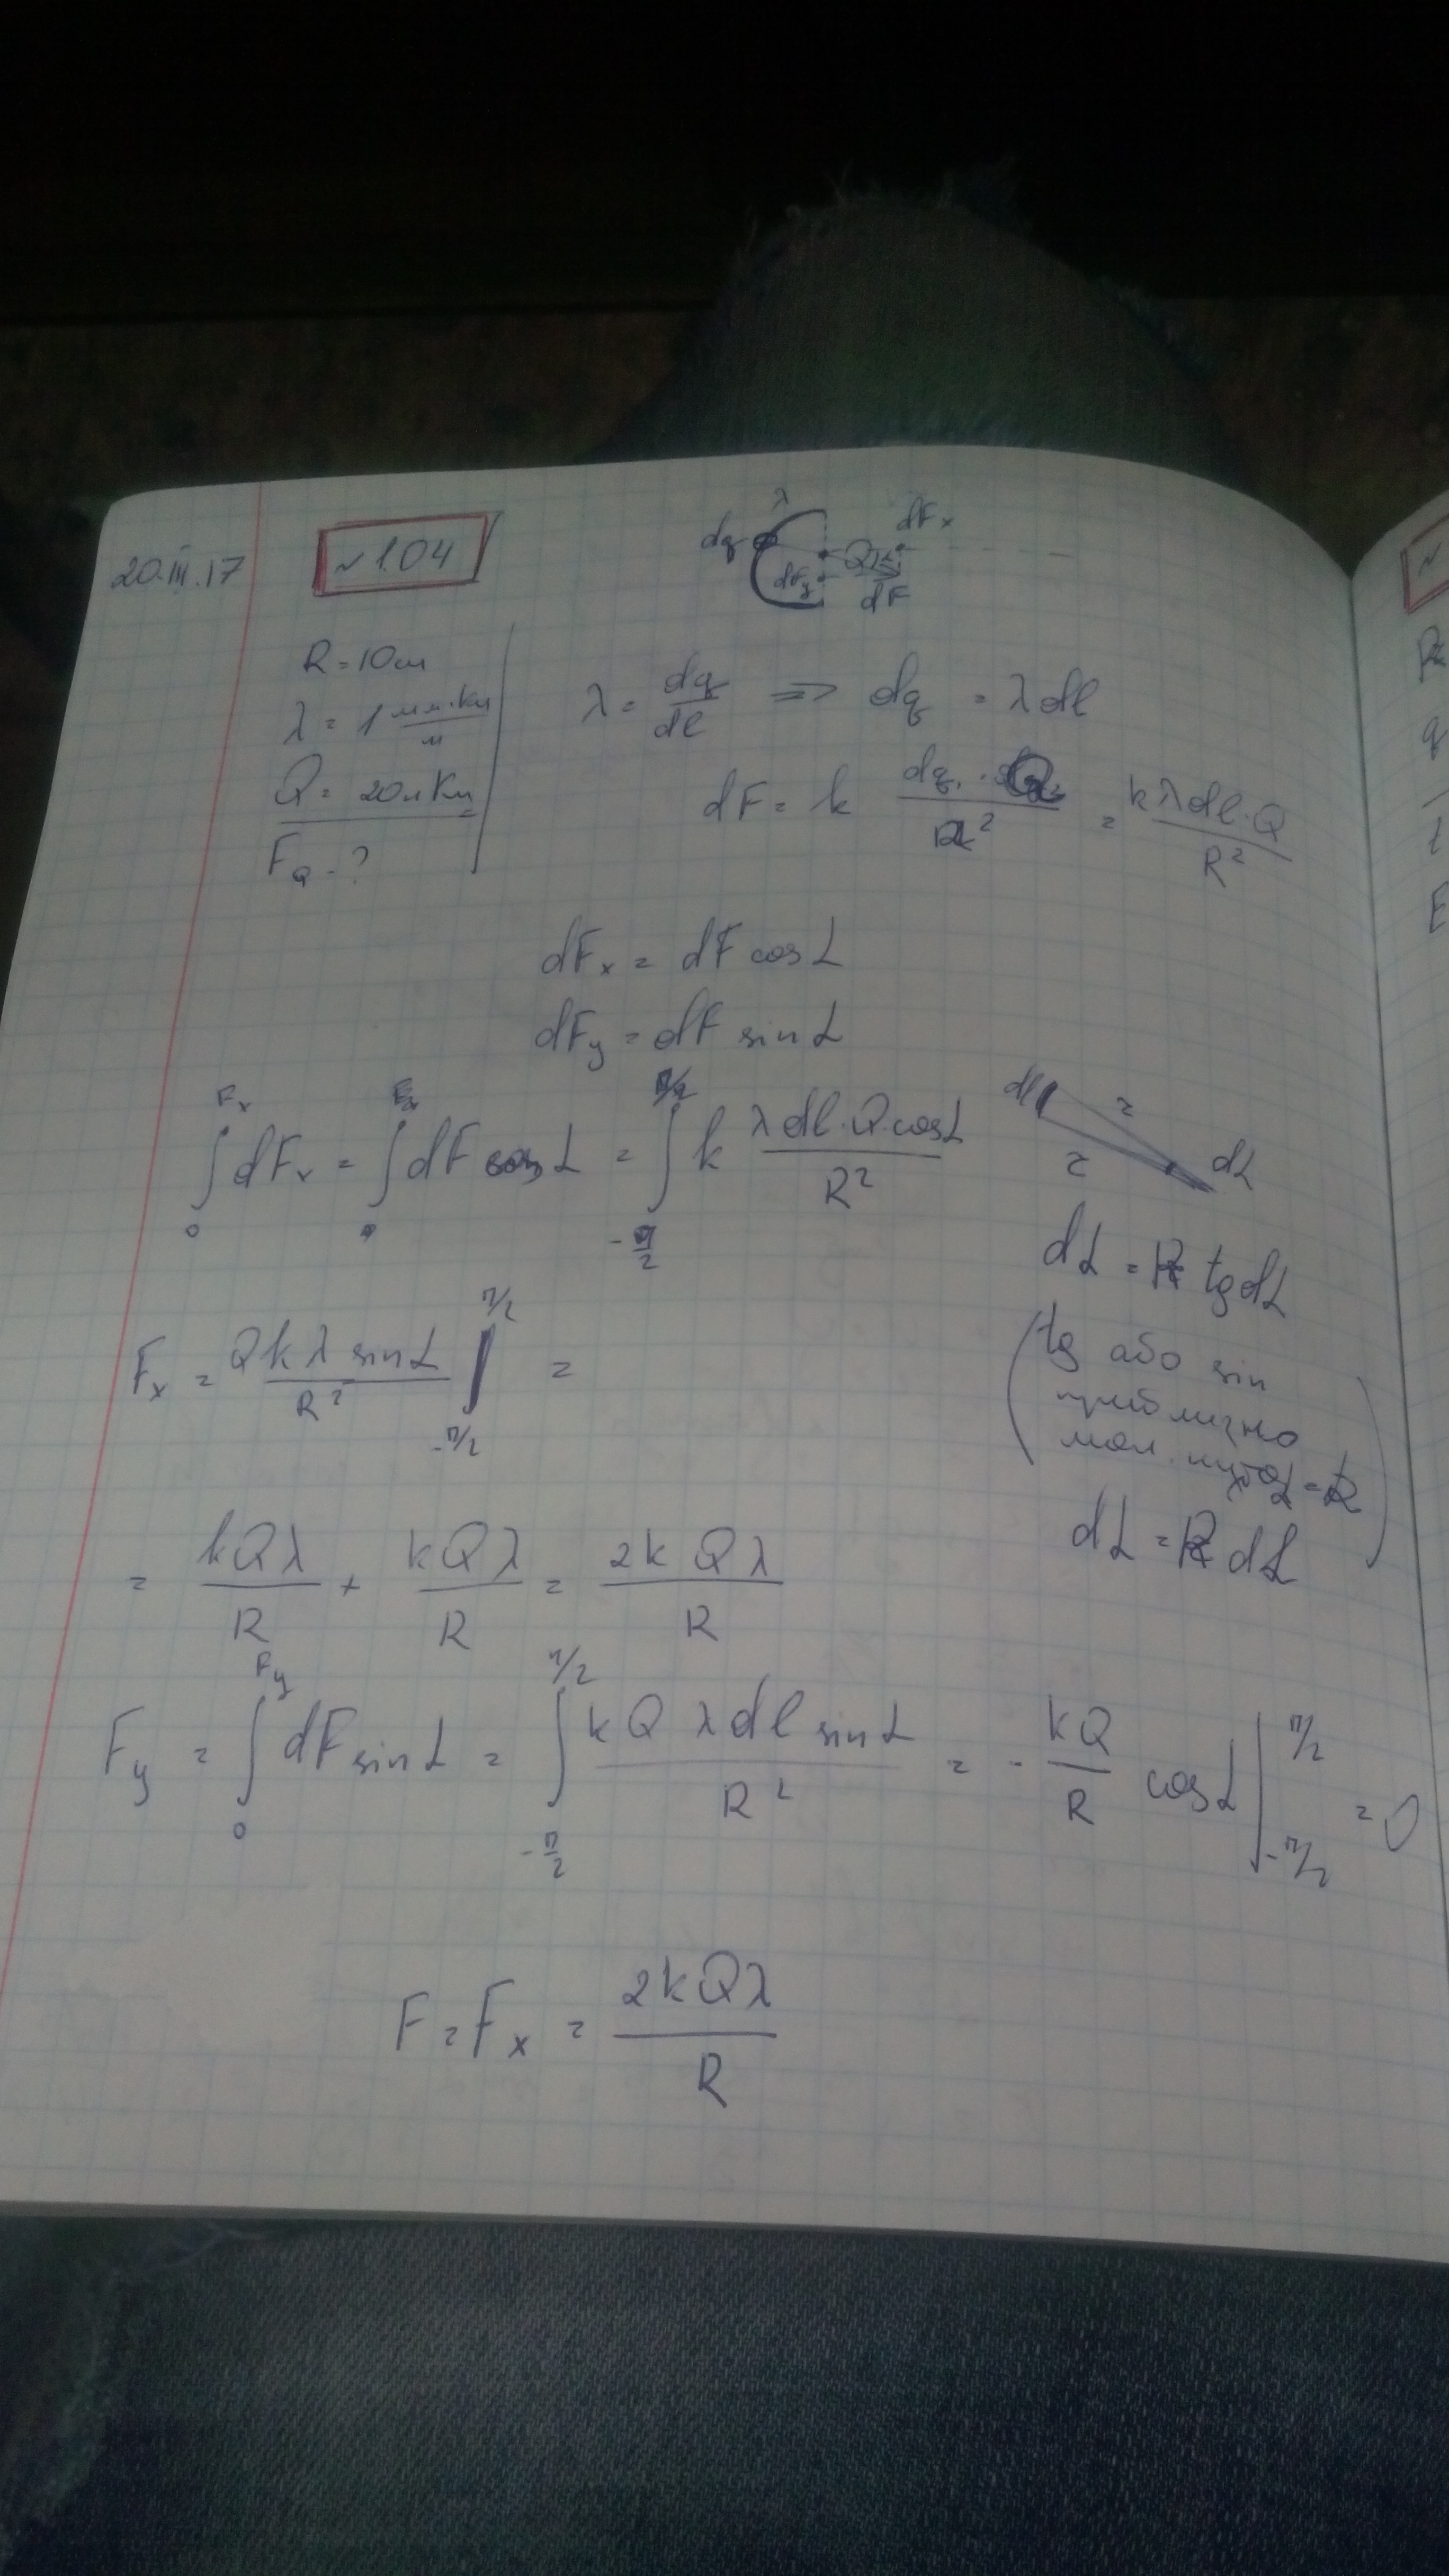 20.III.17
№104
λ
dq
dFx
Q
dFy
dF
R = 10 см
λ = 1 мк·Кл/м
Q = 20 нКл
F_Q - ?
λ = dq/dl => dq = λ dl
dF = k dq·Q/R² = kλdl·Q/R²
dFx = dF cosα
dFy = dF sinα
∫₀^Fx dFx = ∫ dF cosα = ∫_{-π/2}^{π/2} k λdl·Q·cosα/R²
dl
r
r
dα
dα = R tg dα
(tg або sin
приблизно
dα = R dα
Fx = Qkλ sinα/R² |_{-π/2}^{π/2} =
= kQλ/R + kQλ/R = 2kQλ/R
Fy = ∫₀^Fy dF sinα = ∫_{-π/2}^{π/2} kQλdl sinα/R² = - kQ/R cosα |_{-π/2}^{π/2} = 0
F = Fx = 2kQλ/R